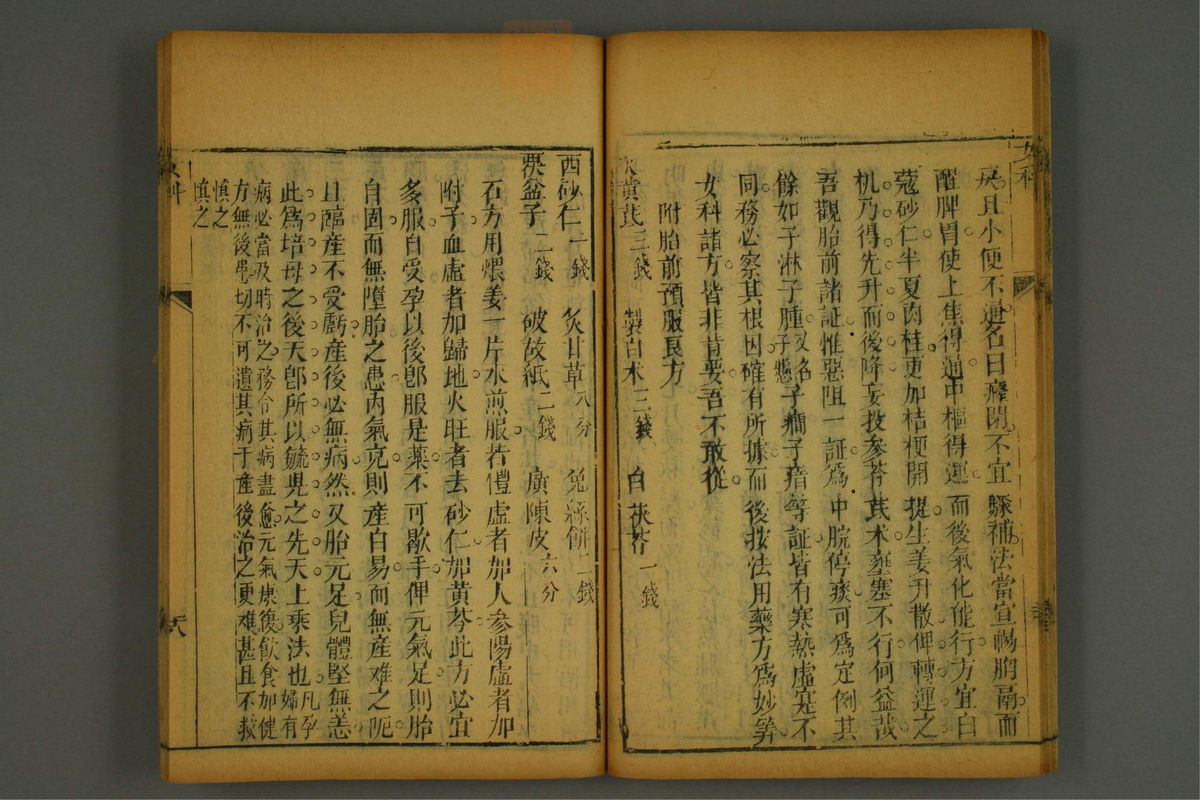 女科
疾且小便不通名曰癃閉不宜驟補法當宣暢胸膈而
醒脾胃使上焦得通中樞得運而後氣化能行方宜白
蔻砂仁半夏肉桂更加桔梗開提生姜升散俾轉運之
机乃得先升而後降妄投参芩茋术壅塞不行何益哉
吾觀胎前諸証惟惡阻一証爲中脘停痰可爲定例其
餘如子淋子腫又名子懸子癎子瘖等証皆有寒熱虛寔不
同務必察其根因確有所據而後按法用藥方爲妙筭
女科諸方皆非肯要吾不敢從
附胎前預服良方
黃茋三錢 製白术三錢 白茯苓一錢
西砂仁一錢 炙甘草八分 兔絲餅二錢
覆盆子二錢 破故紙二錢 廣陳皮六分
右方用煨姜一片水煎服若體虛者加人参陽虛者加
附子血虛者加歸地火旺者去砂仁加黃芩此方必宜
多服自受孕以後卽服是藥不可歇手俾元氣足則胎
自固而無墮胎之患內氣充則產自易而無產难之阨
且臨産不受虧産後必無病然又胎元足兒體堅無恙
此爲培母之後天卽所以毓児之先天上乘法也凡孕婦有
病必當及時治之務令其病盡愈元氣康復飲食加健
方無後患切不可遺其病于産後治之更难甚且不救
慎之慎之
女科